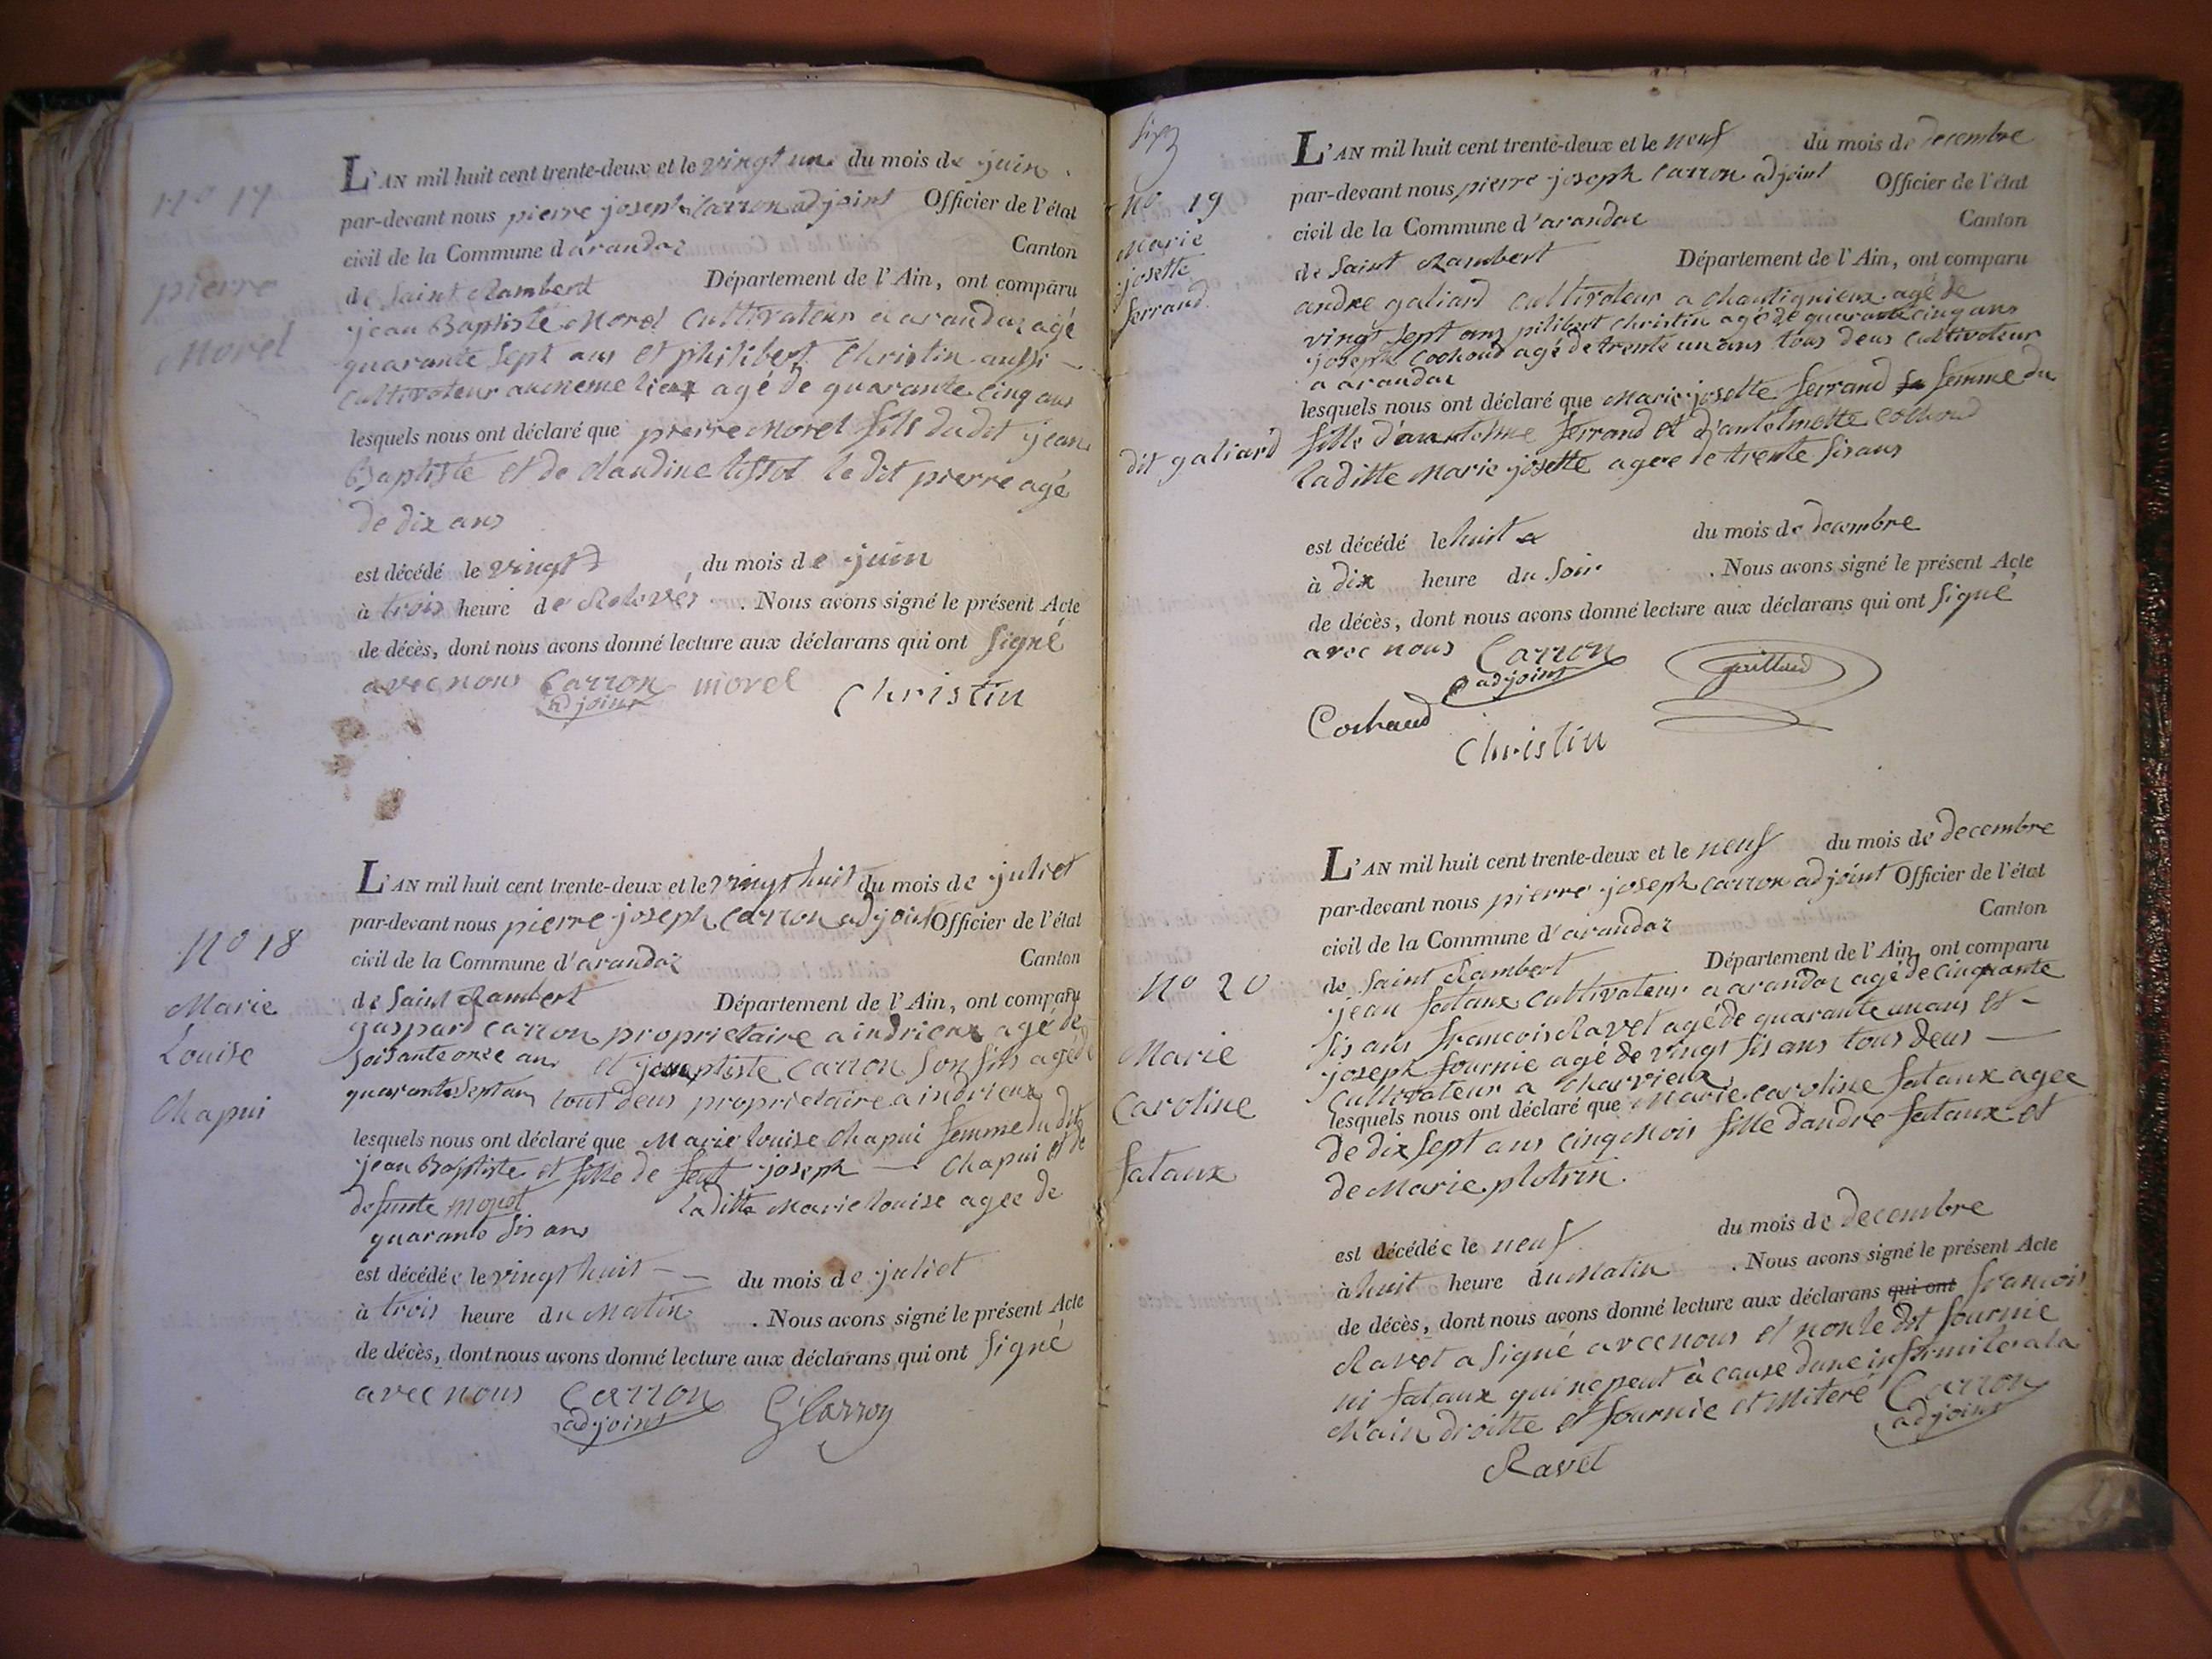 N° 17
pierre
Morel
L'AN mil huit cent trente-deux et le vingt un du mois de juin
par-devant nous pierre joseph Carron adjoint Officier de l'état
civil de la Commune d'arandaz Canton
de Saint Rambert Département de l'Ain, ont comparu
jean Baptiste Morel Cultivateur a arandaz agé
quarante sept ans et philibert Christin aussi
Cultivateur au meme lieu agé de quarante cinq ans
lesquels nous ont déclaré que pierre Morel fils du dit jean
Baptiste et de Claudine le dit pierre agé
de dix ans
est décédé le vingt du mois de juin
à trois heure de . Nous avons signé le présent Acte
de décès, dont nous avons donné lecture aux déclarans qui ont signé
avec nous Carron morel Christin
adjoint
N° 18
Marie
Louise
Chapui
L'AN mil huit cent trente-deux et le vingt huit du mois de juliet
par-devant nous pierre joseph Carron adjoint Officier de l'état
civil de la Commune d'arandaz Canton
de Saint Rambert Département de l'Ain, ont comparu
gaspard carron proprietaire a indrieux agé de
soisante onze ans et carron son fils agé de
quarante sept ans tout deus proprietaire a indrieux
lesquels nous ont déclaré que Marie Louise Chapui femme du dit
jean Baptiste et fille de feut joseph — Chapui et de
defunte la ditte Marie Louise agee de
quarante sis ans
est décédée le vingt huit du mois de juliet
à trois heure du Matin . Nous avons signé le présent Acte
de décès, dont nous avons donné lecture aux déclarans qui ont signé
avec nous Carron G Carron
adjoint
N° 19
Marie
josette
ferrand
dit galiard
L'AN mil huit cent trente-deux et le neuf du mois de decembre
par-devant nous pierre joseph Carron adjoint Officier de l'état
civil de la Commune d'arandaz Canton
de Saint Rambert Département de l'Ain, ont comparu
andre galiard cultivateur a agé de
vingt sept ans pilibert Christin agé de quarante cinq ans
joseph Cochoud agé de trente un ans tous deus cultivateur
a arandaz
lesquels nous ont déclaré que Marie josette ferrand femme du
fille d'antelme ferrand et d'antelmette
la ditte Marie josette agee de trente sis ans
est décédé le huit du mois de decembre
à dix heure du soir . Nous avons signé le présent Acte
de décès, dont nous avons donné lecture aux déclarans qui ont signé
avec nous Carron gaillard
adjoint
Cochaud
Christin
N° 20
Marie
Caroline
fataux
L'AN mil huit cent trente-deux et le neuf du mois de decembre
par-devant nous pierre joseph carron adjoint Officier de l'état
civil de la Commune d'arandaz Canton
de Saint Rambert Département de l'Ain, ont comparu
jean fataux cultivateur a arandaz agé de cinquante
sis ans francois Ravet agé de quarante un ans et
joseph fournie agé de vingt sis ans tous deus
cultivateur a Charvieux
lesquels nous ont déclaré que Marie caroline fataux agee
de dix sept ans cinq Mois fille d'andre fataux et
de Marie plotrin
est décédée le neuf du mois de decembre
à huit heure du Matin . Nous avons signé le présent Acte
de décès, dont nous avons donné lecture aux déclarans qui ont francois
Ravet a signé avec nous et non le dit fournie
ni fataux qui ne peut à cause dune infirmité a la
Main droitte et fournie Carron
adjoint
Ravet